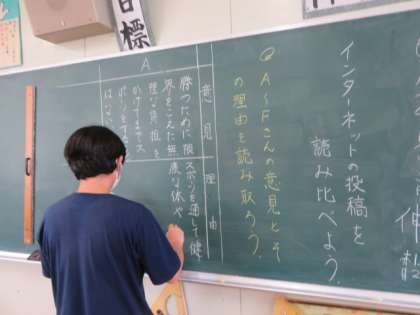 目標
インターネットの投稿を
読み比べよう。
A〜Fさんの意見とそ
の理由を読み取ろう。
意見
理由
A
勝つために限
界をこえた無
理な負担を
かけてまでス
はない
スポーツを通して健
康な体や